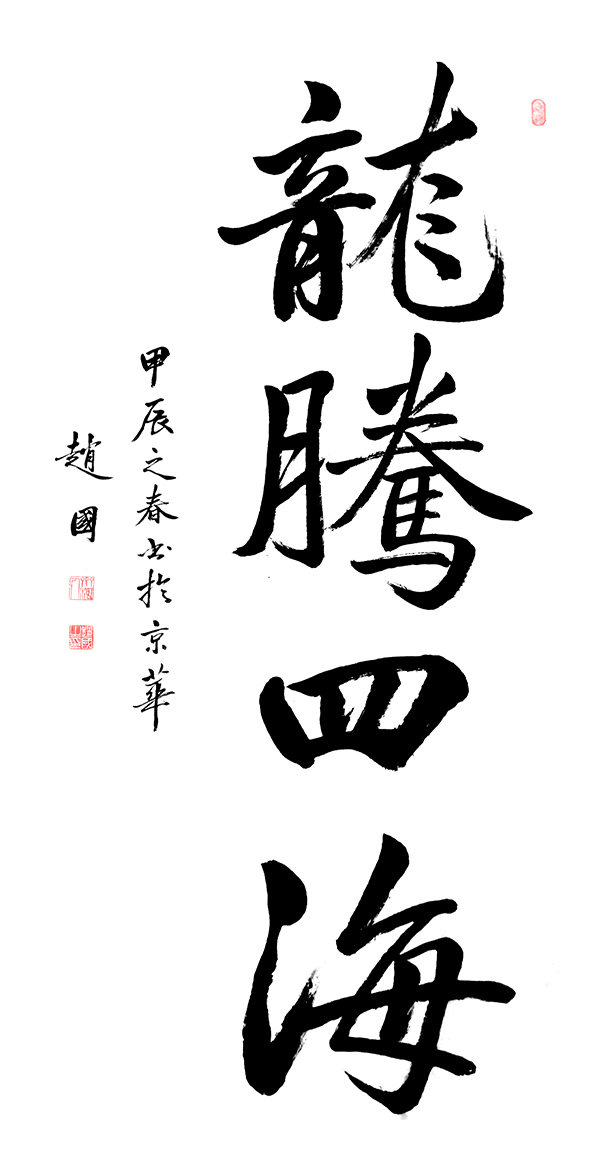 龍騰四海
甲辰之春书於京華
趙國